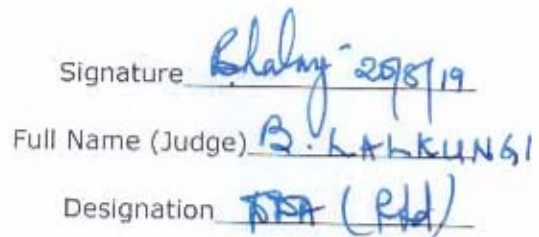 Signature 20/8/19
Full Name (Judge) B. LALKUNGI
Designation (Rtd)